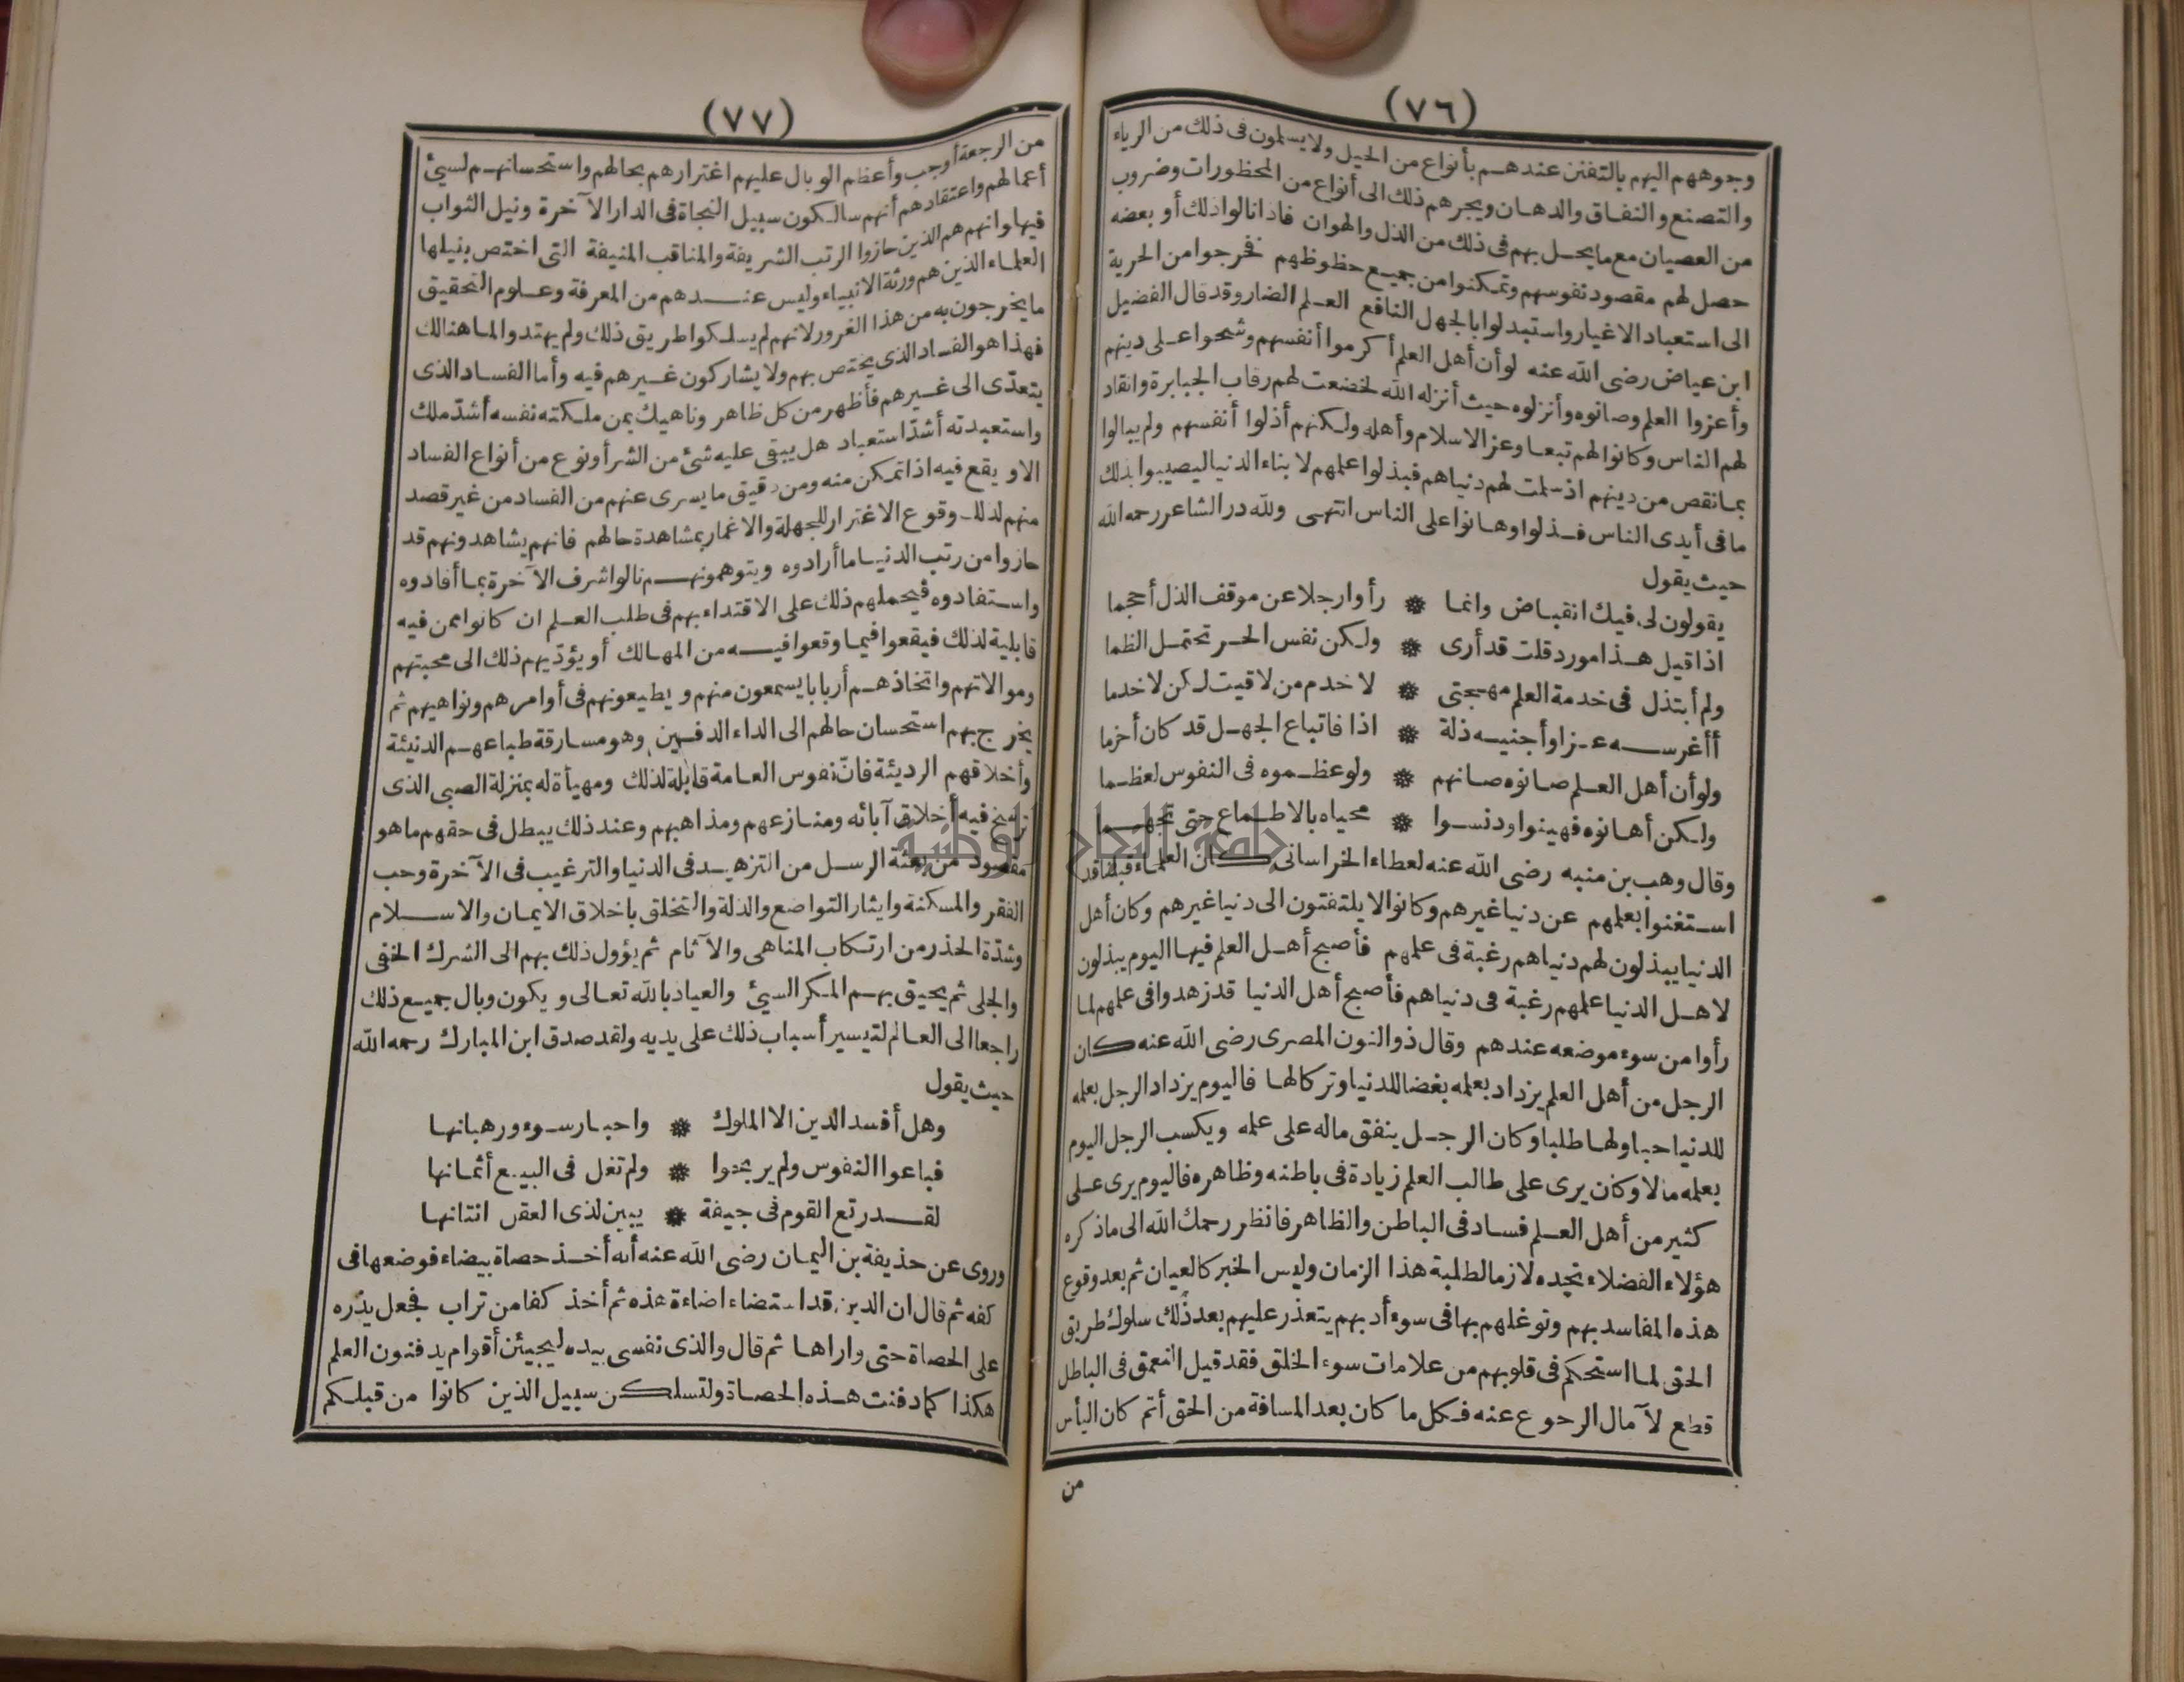 (٧٦)
وجوههم اليهم بالتفنن عندهم بأنواع من الحيل ولا يسلمون فى ذلك من الرياء
والتصنع والنفاق والدهان ويجرهم ذلك الى أنواع من المحظورات وضروب
من العصيان مع ما يحل بهم فى ذلك من الذل والهوان فاذا نالوا ذلك أو بعضه
حصل لهم مقصود نفوسهم وتمكنوا من جميع حظوظهم فخرجوا من الحرية
الى استعباد الاغيار واستبدلوا بالجهل النافع العلم الضار وقد قال الفضيل
ابن عياض رضى الله عنه لو أن أهل العلم أكرموا أنفسهم وشحوا على دينهم
وأعزوا العلم وصانوه وأنزلوه حيث أنزله الله لخضعت لهم رقاب الجبابرة وانقاد
لهم الناس وكانوا لهم تبعا وعز الاسلام وأهله ولكنهم أذلوا أنفسهم ولم يبالوا
بما نقص من دينهم اذ سلمت لهم دنياهم فبذلوا علمهم لابناء الدنيا ليصيبوا بذلك
ما فى أيدى الناس فذلوا وهانوا على الناس انتهى ولله در الشاعر رحمه الله
حيث يقول
يقولون لى فيك انقباض وانما ❋ رأوا رجلا عن موقف الذل أحجما
اذا قيل هذا مورد قلت قد أرى ❋ ولكن نفس الحر تحتمل الظما
ولم أبتذل فى خدمة العلم مهجتى ❋ لاخدم من لاقيت لكن لاخدما
أأغرسه عزا وأجنيه ذلة ❋ اذا فاتباع الجهل قد كان أخرما
ولو أن أهل العلم صانوه صانهم ❋ ولو عظموه فى النفوس لعظما
ولكن أهانوه فهينوا ودنسوا ❋ محياه بالاطماع حتى تجهما
وقال وهب بن منبه رضى الله عنه لعطاء الخراسانى كان العلماء قبلنا قد
استغنوا بعلمهم عن دنيا غيرهم وكانوا لا يلتفتون الى دنيا غيرهم وكان أهل
الدنيا يبذلون لهم دنياهم رغبة فى علمهم فأصبح أهل العلم فيها اليوم يبذلون
لاهل الدنيا علمهم رغبة فى دنياهم فأصبح أهل الدنيا قد زهدوا فى علمهم لما
رأوا من سوء موضعه عندهم وقال ذو النون المصرى رضى الله عنه كان
الرجل من أهل العلم يزداد بعلمه بغضا للدنيا وتركا لها فاليوم يزداد الرجل بعلمه
للدنيا حبا ولها طلبا وكان الرجل ينفق ماله على علمه ويكسب الرجل اليوم
بعلمه مالا وكان يرى على طالب العلم زيادة فى باطنه وظاهره فاليوم يرى على
كثير من أهل العلم فساد فى الباطن والظاهر فانظر رحمك الله الى ما ذكره
هؤلاء الفضلاء تجده لازما لطلبة هذا الزمان وليس الخبر كالعيان ثم بعد وقوع
هذه المفاسد بهم وتوغلهم بها فى سوء أدبهم يتعذر عليهم بعد ذلك سلوك طريق
الحق لما استحكم فى قلوبهم من علامات سوء الخلق فقد قيل التعمق فى الباطل
قطع لآمال الرجوع عنه فكل ما كان بعد المسافة من الحق أتم كان اليأس
من
(٧٧)
من الرجعة أوجب وأعظم الوبال عليهم اغترارهم بحالهم واستحسانهم لسيئ
أعمالهم واعتقادهم أنهم سالكون سبيل النجاة فى الدار الآخرة ونيل الثواب
فيها وانهم هم الذين حازوا الرتب الشريفة والمناقب المنيفة التى اختص بنيلها
العلماء الذين هم ورثة الانبياء وليس عندهم من المعرفة وعلوم التحقيق
ما يخرجون به من هذا الغرور لانهم لم يسلكوا طريق ذلك ولم يهتدوا لما هنالك
فهذا هو الفساد الذى يختص بهم ولا يشاركون غيرهم فيه وأما الفساد الذى
يتعدّى الى غيرهم فأظهر من كل ظاهر وناهيك بمن ملكته نفسه أشدّ ملك
واستعبدته أشدّ استعباد هل يبقى عليه شئ من الشر أو نوع من أنواع الفساد
الا و يقع فيه اذا تمكن منه ومن دقيق ما يسرى عنهم من الفساد من غير قصد
منهم لذلك وقوع الاغترار للجهلة والاغمار بمشاهدة حالهم فانهم يشاهدونهم قد
حازوا من رتب الدنيا ما أرادوه ويتوهمونهم نالوا شرف الآخرة بما أفادوه
واستفادوه فيحملهم ذلك على الاقتداء بهم فى طلب العلم ان كانوا ممن فيه
قابلية لذلك فيقعوا فيما وقعوا فيه من المهالك أو يؤدّيهم ذلك الى محبتهم
وموالاتهم واتخاذهم أربابا يسمعون منهم ويطيعونهم فى أوامرهم ونواهيهم ثم
يخرج بهم استحسان حالهم الى الداء الدفين وهو مسارقة طباعهم الدنيئة
وأخلاقهم الرديئة فانّ نفوس العامة قابلة لذلك ومهيأة له بمنزلة الصبى الذى
ترسخ فيه أخلاق آبائه ومنازعهم ومذاهبهم وعند ذلك يبطل فى حقهم ما هو
مقصود من بعثة الرسل من التزهيد فى الدنيا والترغيب فى الآخرة وحب
الفقر والمسكنة وايثار التواضع والذلة والتخلق باخلاق الايمان والاسلام
وشدّة الحذر من ارتكاب المناهى والآثام ثم يؤول ذلك بهم الى الشرك الخفى
والجلى ثم يحيق بهم المكر السيئ والعياذ بالله تعالى ويكون وبال جميع ذلك
راجعا الى العالم لتيسير أسباب ذلك على يديه ولقد صدق ابن المبارك رحمه الله
حيث يقول
وهل أفسد الدين الا الملوك ❋ واحبار سوء ورهبانها
فباعوا النفوس ولم يربحوا ❋ ولم تغل فى البيع أثمانها
لقد رتع القوم فى جيفة ❋ يبين لذى العقل انتانها
وروى عن حذيفة بن اليمان رضى الله عنه أنه أخذ حصاة بيضاء فوضعها فى
كفه ثم قال ان الدين قد استضاء اضاءة هذه ثم أخذ كفا من تراب فجعل يذره
على الحصاة حتى واراها ثم قال والذى نفسى بيده ليجيئن أقوام يدفنون العلم
هكذا كما دفنت هذه الحصاة ولتسلكن سبيل الذين كانوا من قبلكم
جامعة النجاح الوطنية